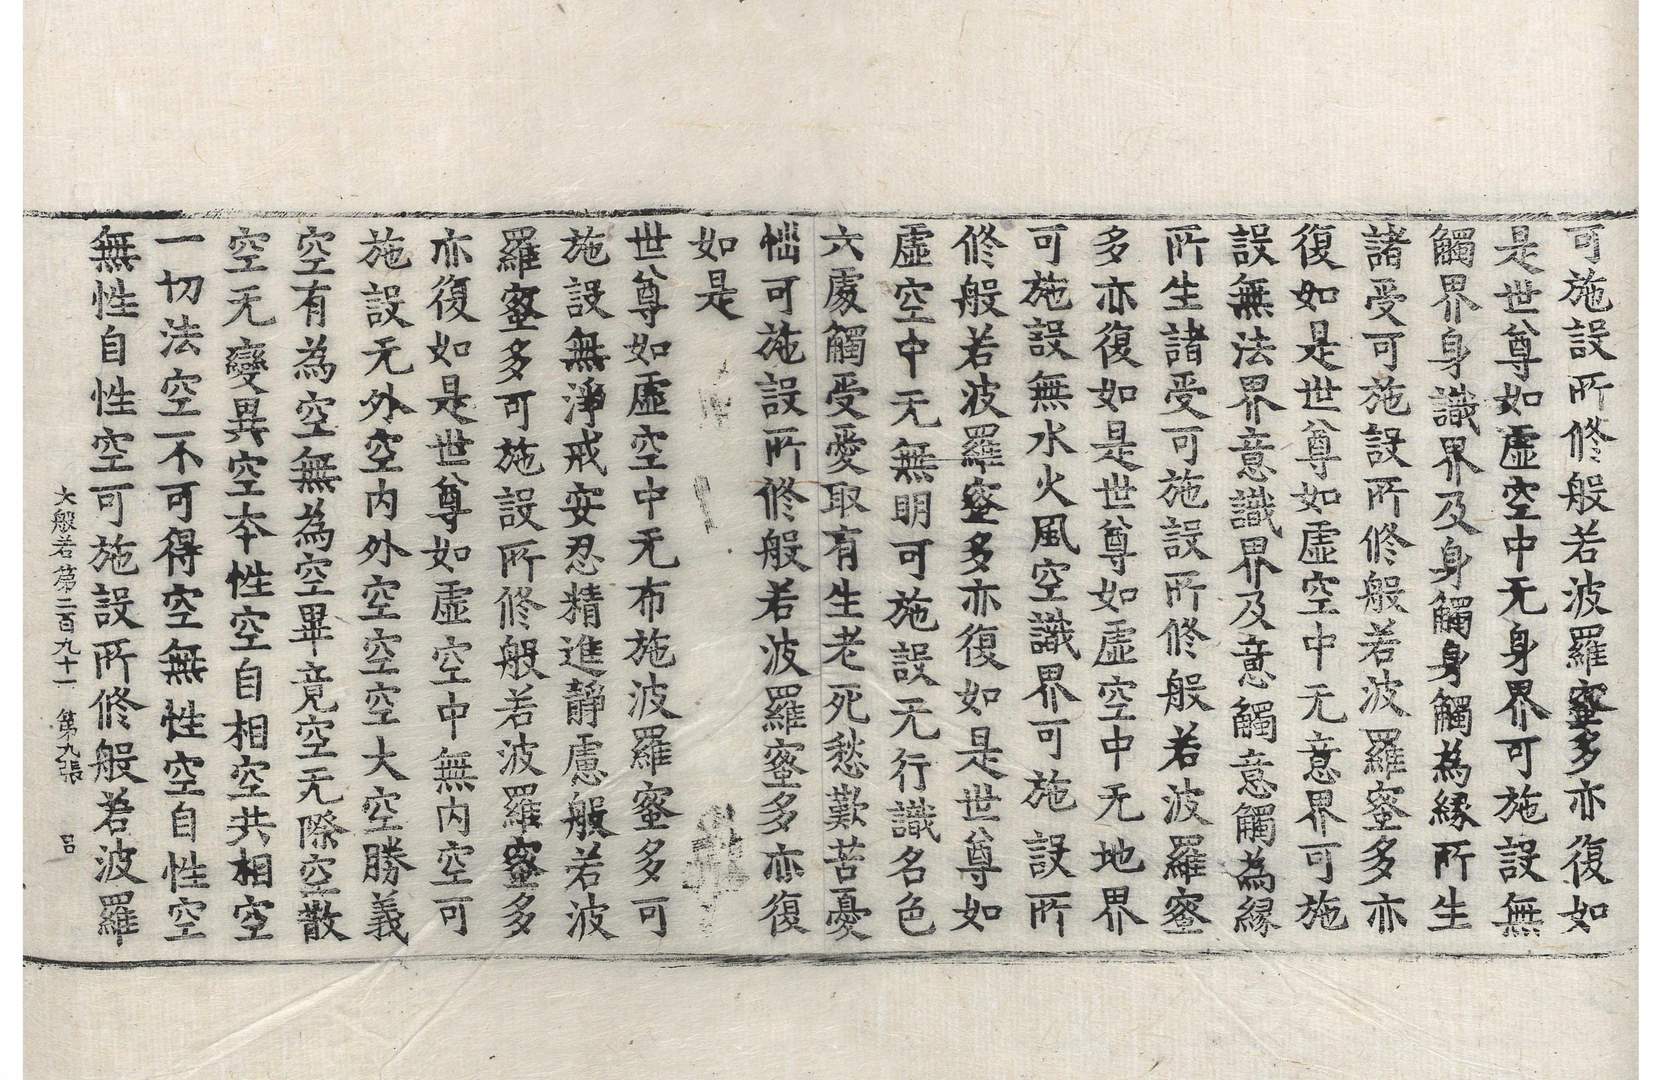 可施設所修般若波羅蜜多亦復如
是世尊如虛空中无身界可施設無
觸界身識界及身觸身觸為緣所生
諸受可施設所修般若波羅蜜多亦
復如是世尊如虛空中无意界可施
設無法界意識界及意觸意觸為緣
所生諸受可施設所修般若波羅蜜
多亦復如是世尊如虛空中无地界
可施設無水火風空識界可施設所
修般若波羅蜜多亦復如是世尊如
虛空中无無明可施設无行識名色
六處觸受愛取有生老死愁歎苦憂
惱可施設所修般若波羅蜜多亦復
如是
世尊如虛空中无布施波羅蜜多可
施設無淨戒安忍精進靜慮般若波
羅蜜多可施設所修般若波羅蜜多
亦復如是世尊如虛空中無內空可
施設无外空內外空空空大空勝義
空有為空無為空畢竟空无際空散
空无變異空本性空自相空共相空
一切法空不可得空無性空自性空
無性自性空可施設所修般若波羅
大般若第二百九十一 第九張 呂